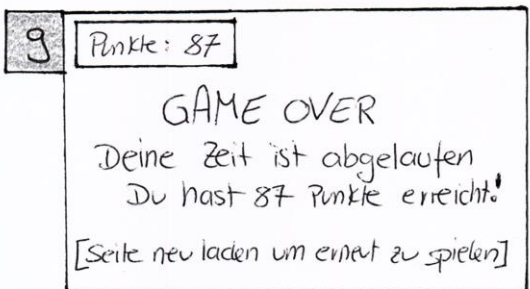 9
Punkte: 87
GAME OVER
Deine Zeit ist abgelaufen
Du hast 87 Punkte erreicht!
[Seite neu laden um erneut zu spielen]